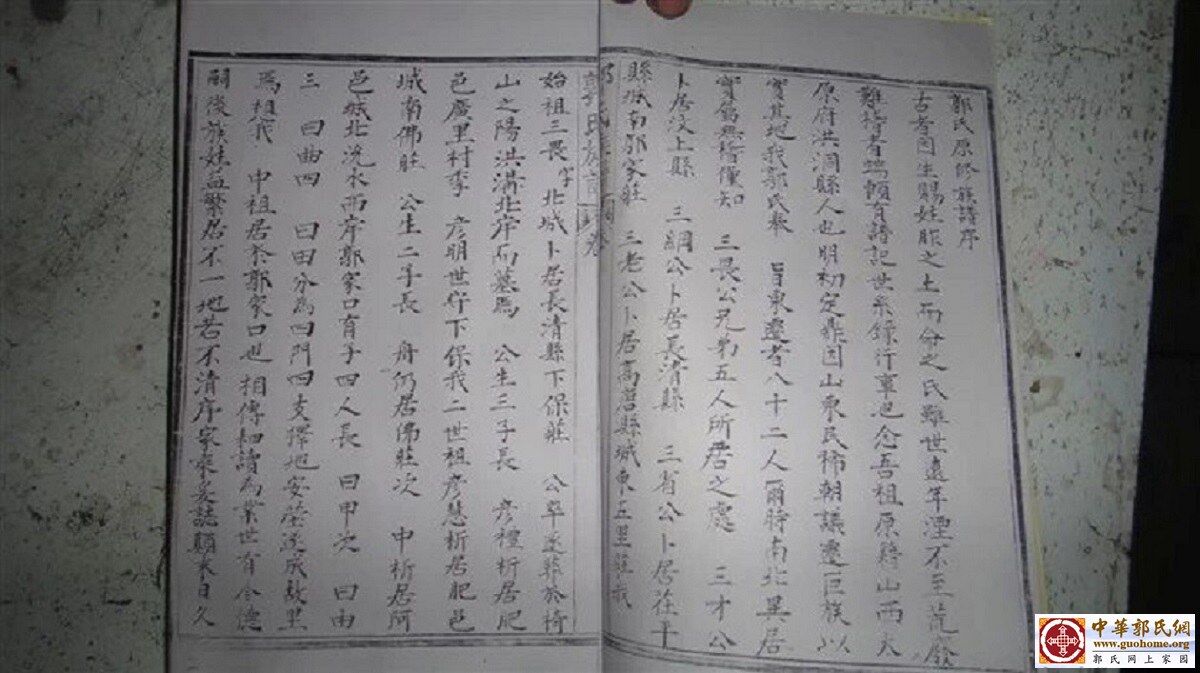 郭氏原修族譜序
古者因生賜姓胙之土而分之氏雖世遠年湮不至荒廢
難稽者端賴有譜記世系錄行事也念吾祖原籍山西太
原府洪洞縣人也明初定鼎因山東民稀朝議遷巨族以
實其地我郭氏奉 旨東遷者八十二人爾時南北異居
實篤無稽僅知 三畏公兄弟五人所居之處 三才公
卜居汶上縣 三綱公卜居長清縣 三省公卜居茌平
縣城南郭家莊 三老公卜居高唐縣城東五里莊我
郭氏族譜 卷
始祖三畏字北城卜居長清縣下保莊 公卒遂葬於椅
山之陽洪溝北岸而墓焉 公生三子長 彦種析居肥
邑廣里村季 彦明世佇下保我二世祖彦慧析居肥邑
城南佛莊 公生二子長 舟仍居佛莊次 中析居阿
邑城北洗水西岸郭家口育子四人長 曰甲次 曰由
三 曰曲四 曰田分為四門四支擇地安塋遂成故里
焉祖我 中祖居於郭家口也相傳細讀為業世有令德
嗣後族姓益繁居不一地若不清序家乘爰誌顛末日久
中華郭氏網
www.guohome.org
郭氏网上家园